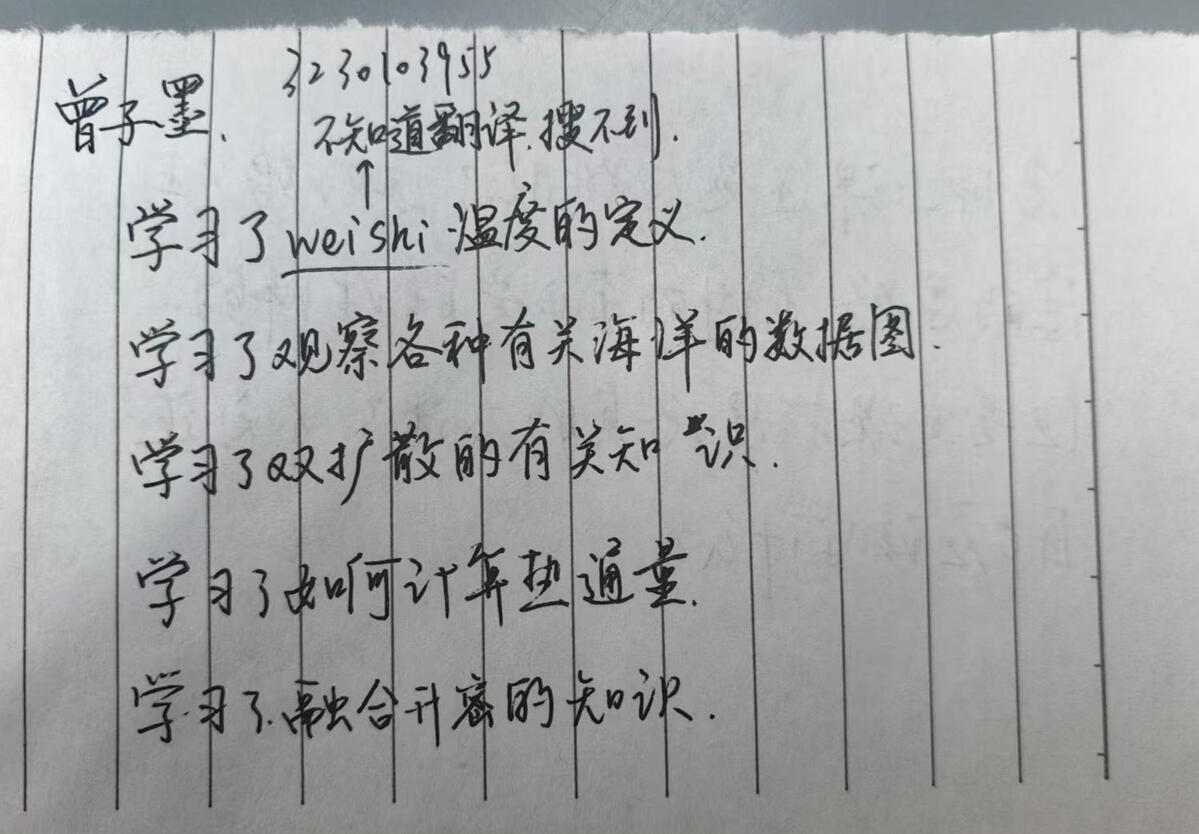 3230103955
曾子墨.
不知道翻译.搜不到.
↑
学习了weishi温度的定义.
学习了观察各种有关海洋的数据图.
学习了双扩散的有关知识.
学习了如何计算热通量.
学习了.融合升密的知识.